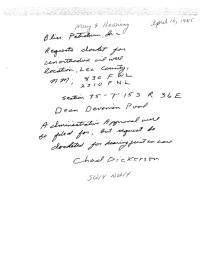 May 8 Hearing
April 16, 1985
Petroleum, Inc
Requests docket for
unorthodox oil well
location, Lea County,
N.M., 830 F N L
2310 F N L
Section 35 - T 15 S R 36 E
Dean Devonian Pool
Administrative Approval will
be filed for, but request be
docketed for hearing just in case
Chad Dickerson
SW/4 NW/4